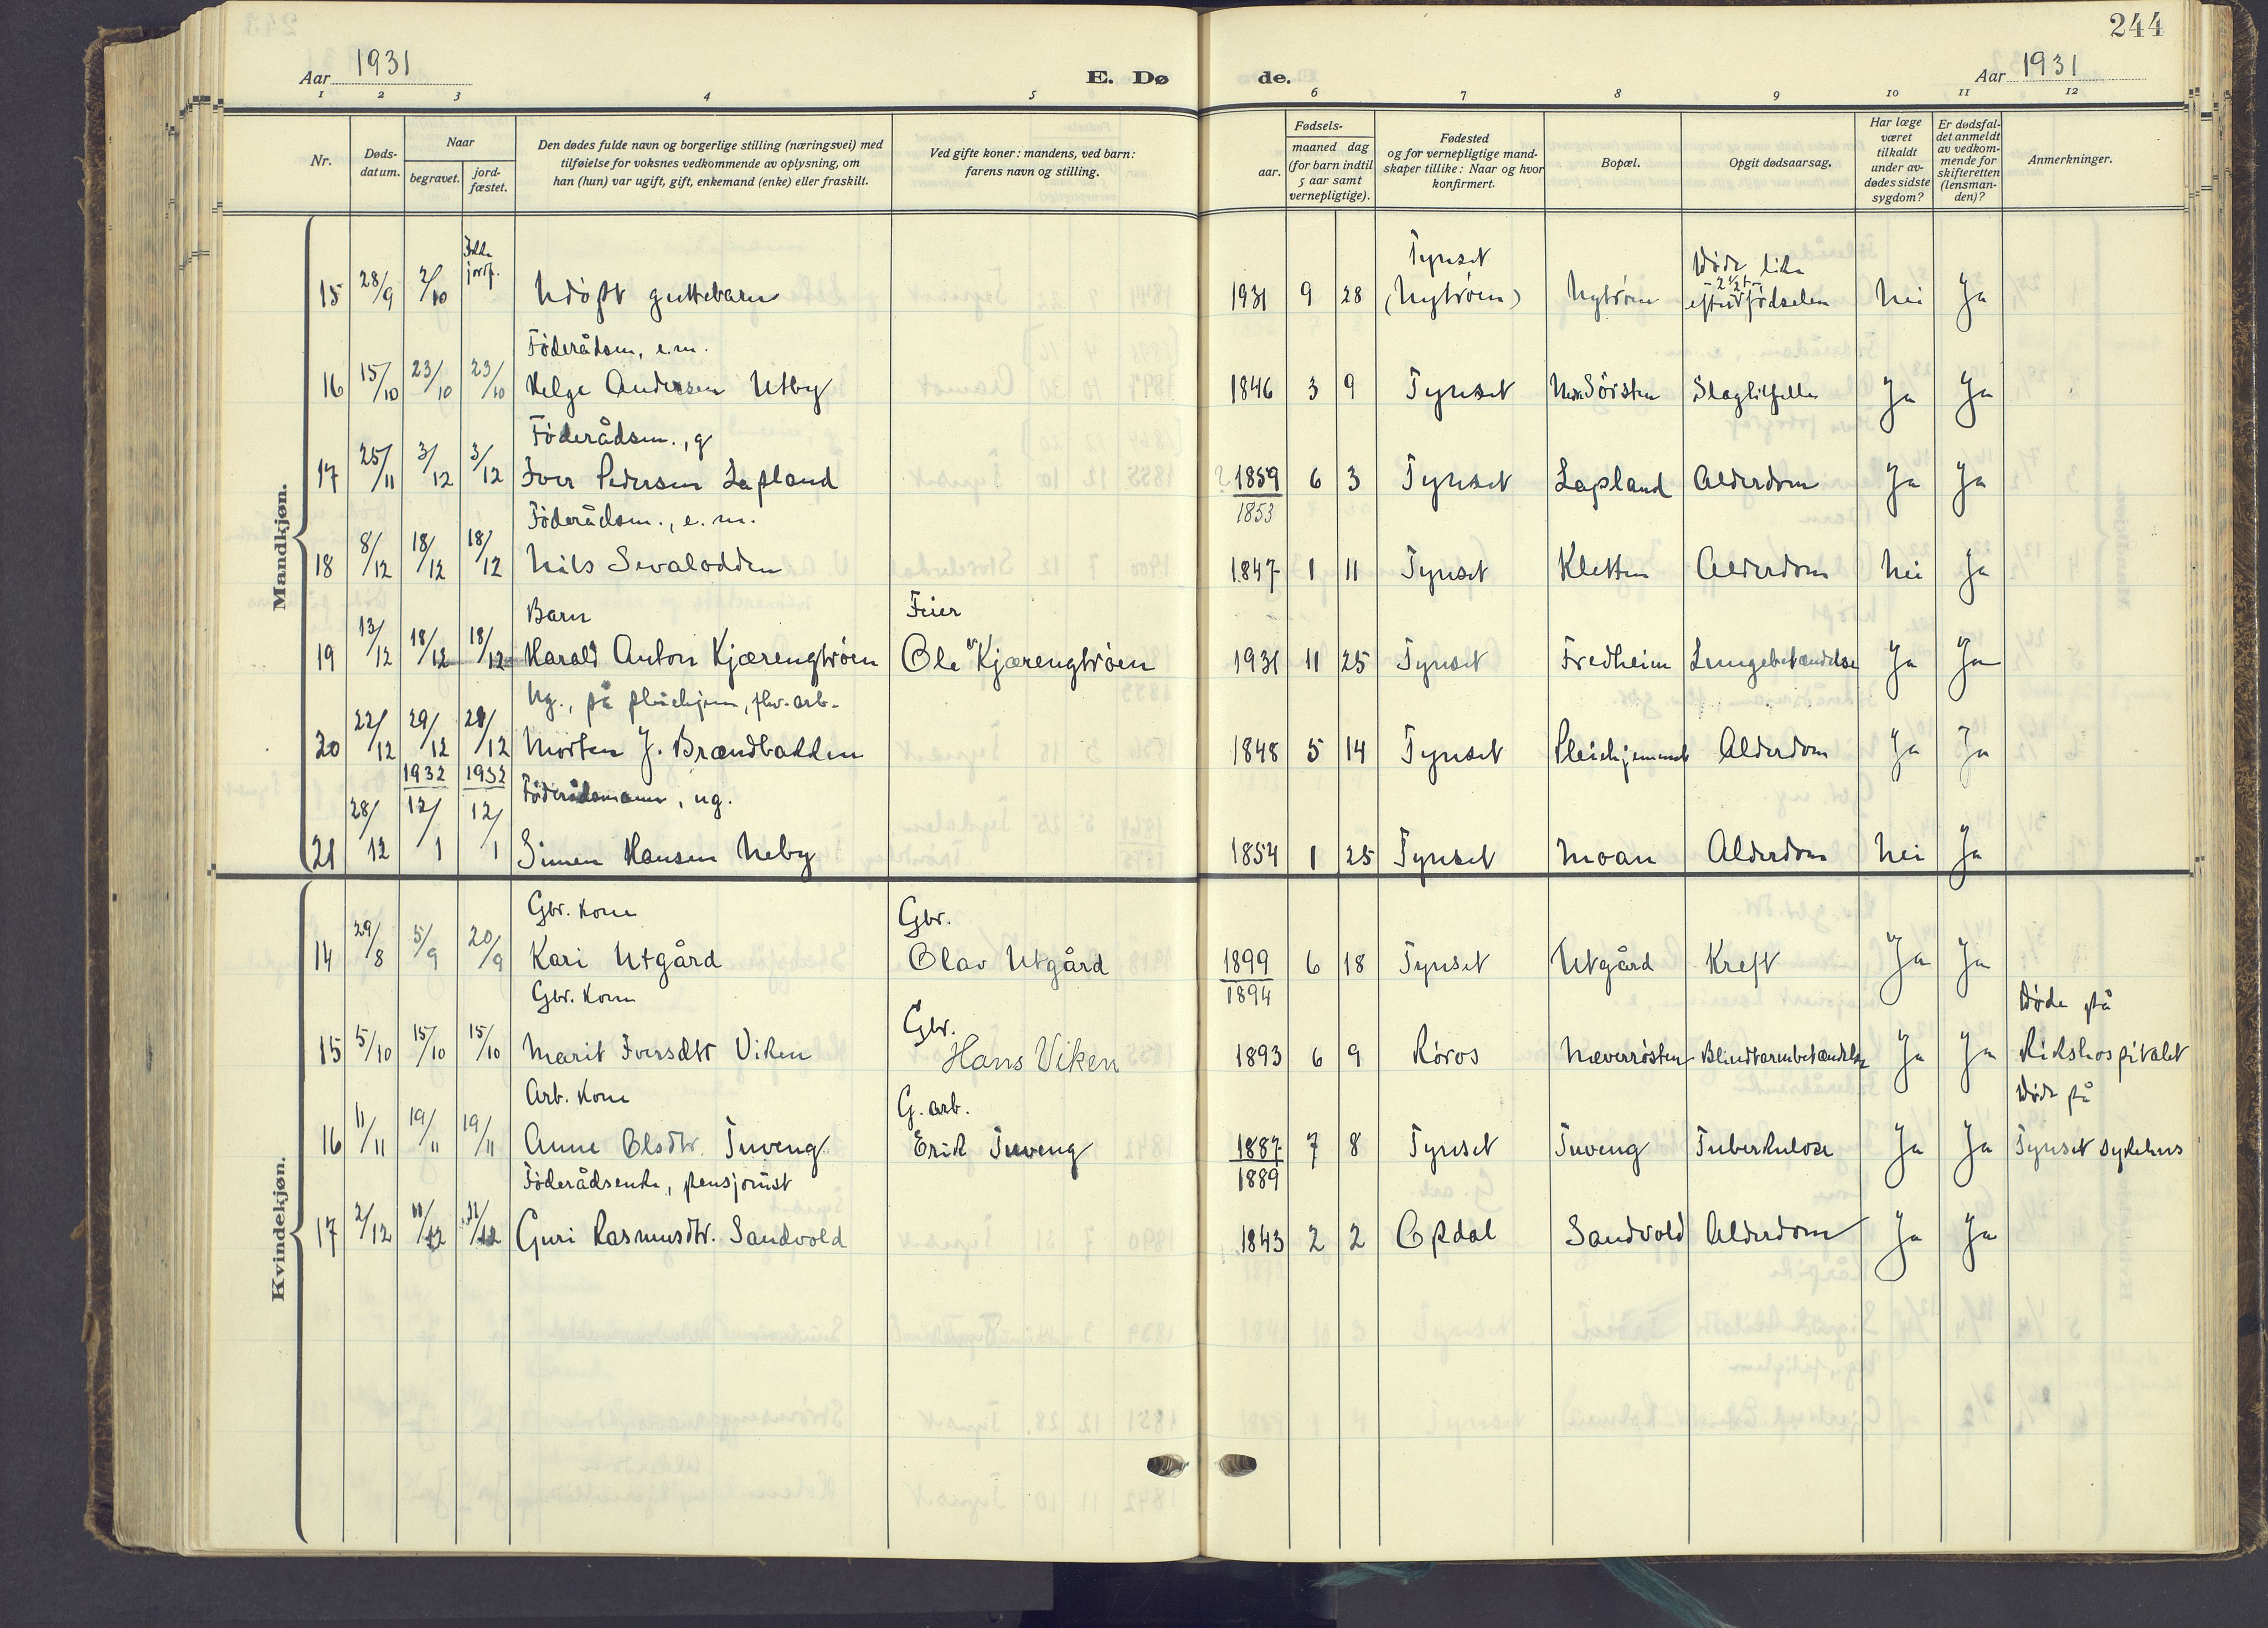 244
Aar 1931 E. Dø de. Aar 1931
1 2 3 4 5 6 7 8 9 10 11 12
Nr. Døds-datum. Naar begravet. jord-fæstet. Den dødes fulde navn og borgerlige stilling (næringsvei) med tilføielse for voksnes vedkommende av oplysning, om han (hun) var ugift, gift, enkemand (enke) eller fraskilt. Ved gifte koner: mandens, ved barn: farens navn og stilling. Fødsels- aar. maaned dag (for barn indtil 5 aar samt vernepligtige). Fødested og for vernepligtige mandskaper tillike: Naar og hvor konfirmert. Bopæl. Opgit dødsaarsag. Har læge været tilkaldt under avdødes sidste sygdom? Er dødsfaldet anmeldt av vedkommende for skifteretten (lensmanden)? Anmerkninger.
Mandkjøn.
Ikke jordf. Tynset Døde like
15 28/9 2/10 Udøpt guttebarn 1931 9 28 (Nytrøen) Nytrøen - 2½ t - efter fødselen Nei Ja
Föderådsm, e.m.
16 15/10 23/10 23/10 Helge Andersen Utby 1846 3 9 Tynset Slagtilfelle Ja Ja
Föderådsm., g
17 25/11 3/12 3/12 Iver Pedersen Lapland ? 1859 6 3 Tynset Lapland Alderdom Ja Ja
1853
Föderådsm., e.m.
18 8/12 18/12 18/12 Nils Sevalodden 1847 1 11 Tynset Kletten Alderdom Nei Ja
Barn Feier
19 13/12 18/12 18/12 Harald Anton Kjærengtrøen Ole Kjærengtrøen 1931 11 25 Tynset Fredheim Lungebetændelse Ja Ja
Ug., på pleiehjem, fhv. arb.
20 22/12 29/12 29/12 Morten J. Brændbakken 1848 5 14 Tynset Pleiehjemmet Alderdom Ja Ja
1932 1932
Föderådsmann, ug.
21 28/12 12/1 12/1 Simen Hansen Neby 1854 1 25 Tynset Moan Alderdom Nei Ja
Kvindekjøn.
Gbr. kone Gbr.
14 29/8 5/9 20/9 Kari Utgård Olav Utgård 1899 6 18 Tynset Utgård Kreft Ja Ja
1894
Gbr. kone Gbr. Døde på
15 5/10 15/10 15/10 Marit Iversdtr Viken Hans Viken 1893 6 9 Røros Næverrøsten Blindtarmbetændelse Ja Ja Rikshospitalet
Arb. kone G. arb. Døde på
16 11/11 19/11 19/11 Anne Olsdtr. Tuveng Erik Tuveng 1887 7 8 Tynset Tuveng Tuberkulose Ja Ja Tynset sykehus
1889
Föderådsenke, pensjonist
17 2/12 11/12 11/12 Guri Rasmusdtr. Sandvold 1843 2 2 Opdal Sandvold Alderdom Ja Ja